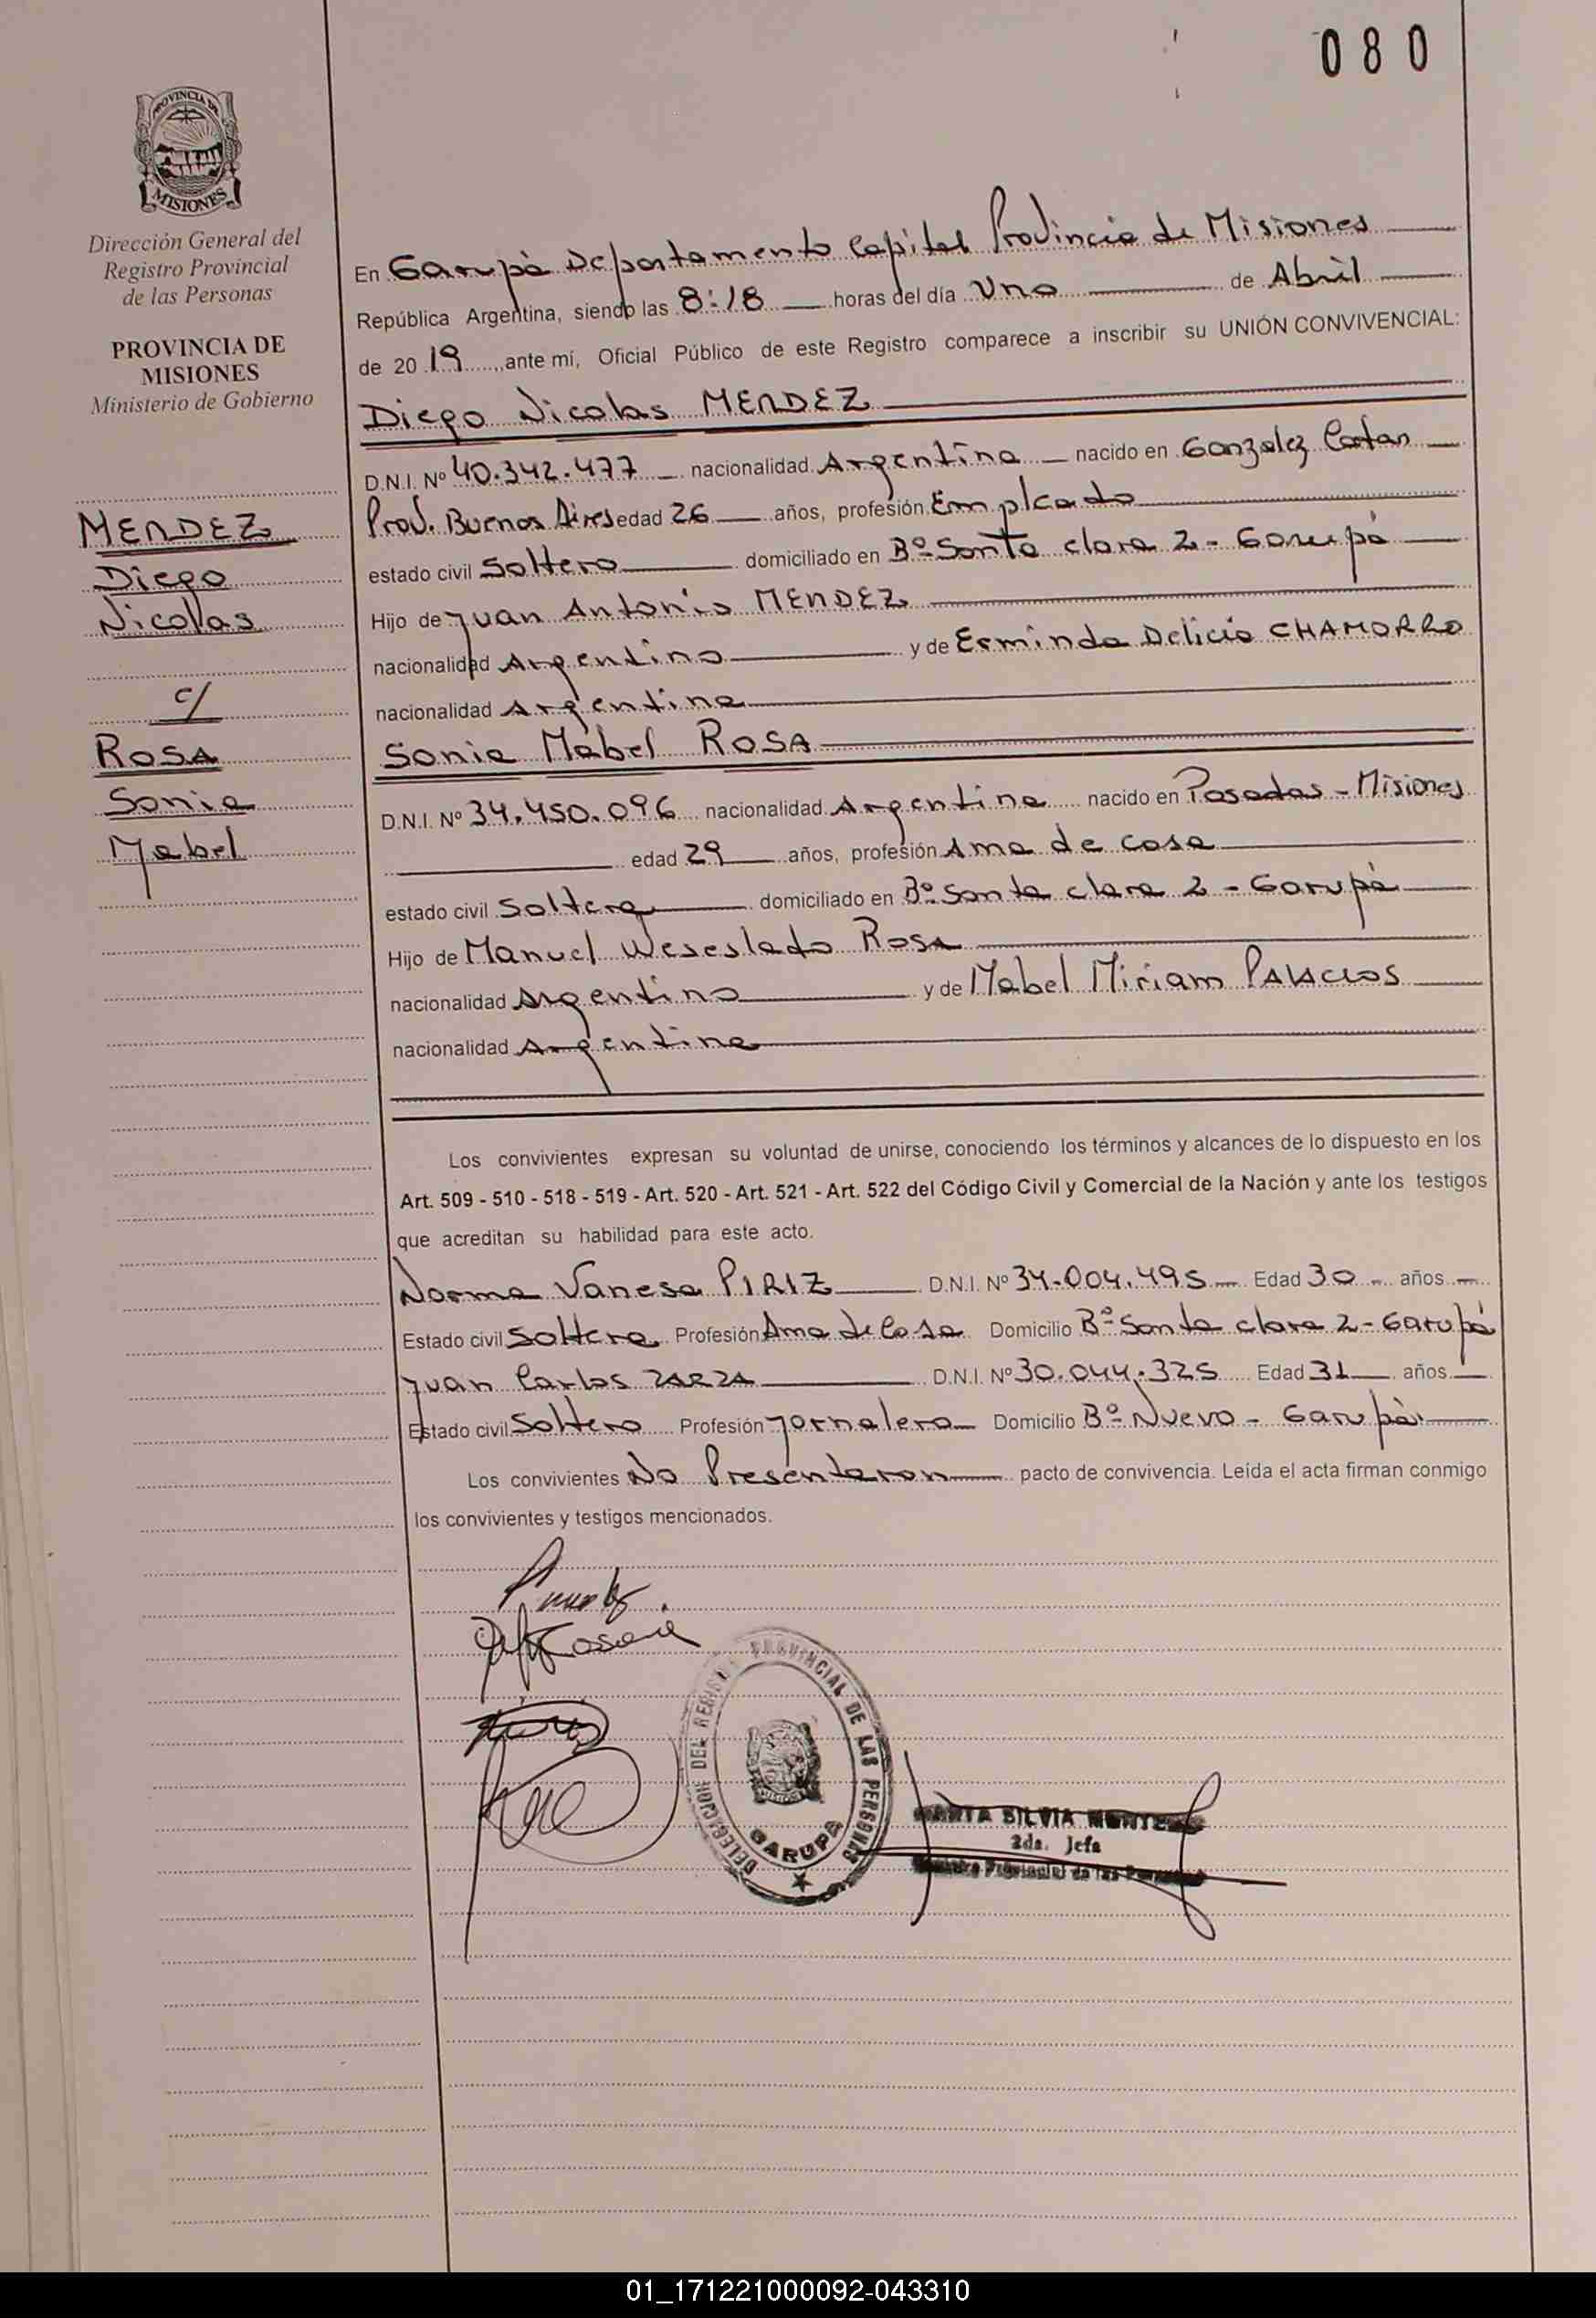 080
PROVINCIA DE
MISIONES
Dirección General del
Registro Provincial
de las Personas
PROVINCIA DE
MISIONES
Ministerio de Gobierno
MENDEZ
Diego
Nicolas
c/
ROSA
Sonia
Mabel
En Garupà Departamento Capital Provincia de Misiones
República Argentina, siendo las 8:18 horas del día Uno de Abril
de 2019, ante mí, Oficial Público de este Registro comparece a inscribir su UNIÓN CONVIVENCIAL:
Diego Nicolas MENDEZ
D.N.I. Nº 40.342.477 nacionalidad Argentina nacido en Gonzalez Catan
Prov. Buenos Aires edad 26 años, profesión Empleado
estado civil Soltero domiciliado en Bº Santa clara 2 - Garupà
Hijo de Juan Antonio MENDEZ
nacionalidad Argentino y de Erminda Delicia CHAMORRO
nacionalidad Argentina
Sonia Mabel ROSA
D.N.I. Nº 34.450.096 nacionalidad Argentina nacido en Posadas - Misiones
edad 29 años, profesión Ama de casa
estado civil Soltera domiciliado en Bº Santa clara 2 - Garupà
Hijo de Manuel Weseslado ROSA
nacionalidad Argentino y de Mabel Miriam PALACIOS
nacionalidad Argentina
Los convivientes expresan su voluntad de unirse, conociendo los términos y alcances de lo dispuesto en los
Art. 509 - 510 - 518 - 519 - Art. 520 - Art. 521 - Art. 522 del Código Civil y Comercial de la Nación y ante los testigos
que acreditan su habilidad para este acto.
Norma Vanesa PIRIZ D.N.I. Nº 34.004.495 Edad 30 años
Estado civil Soltera Profesión Ama de Casa Domicilio Bº Santa clara 2 - Garupà
Juan Carlos ZARZA D.N.I. Nº 30.044.325 Edad 31 años
Estado civil Soltero Profesión Jornalero Domicilio Bº Nuevo - Garupà
Los convivientes No Presentaron pacto de convivencia. Leída el acta firman conmigo
los convivientes y testigos mencionados.
DELEGACION DEL REGISTRO PROVINCIAL DE LAS PERSONAS
GARUPA
SILVIA
2da. Jefa
Registro Provincial de las Personas
01_171221000092-043310